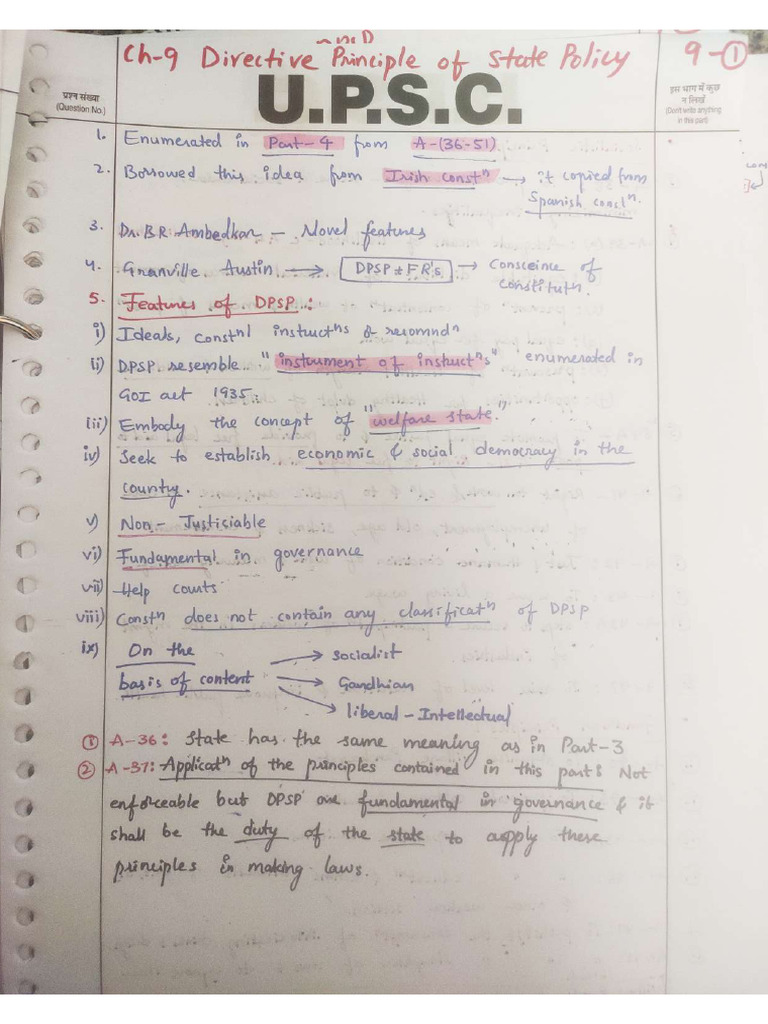 Ch-9 Directive Principle of State Policy 9-①
U.P.S.C.
प्रश्न संख्या
(Question No.)
इस भाग में कुछ
न लिखें
(Don't write anything
in this part)
1. Enumerated in Part-4 from A-(36-51).
2. Borrowed this idea from Irish constⁿ → it copied from
Spanish constⁿ.
3. Dr. B.R. Ambedkar - Novel features
4. Granville Austin → DPSP + FR's → Consceince of
constitutn.
5. Features of DPSP:
i) Ideals, constⁿl instructⁿs & recomndⁿ
ii) DPSP resemble "instrument of instructⁿs" enumerated in
GOI act 1935.
iii) Embody the concept of "welfare state."
iv) Seek to establish economic & social democracy in the
country.
v) Non-Justiciable
vi) Fundamental in governance
vii) Help courts
viii) Constⁿ does not contain any classificatⁿ of DPSP
ix) On the
basis of content
→ Socialist
→ Gandhian
→ liberal-Intellectual
① A-36: State has the same meaning as in Part-3
② A-37: Applicatⁿ of the principles contained in this part: Not
enforceable but DPSP are fundamental in governance & it
shall be the duty of the state to apply these
principles in making laws.